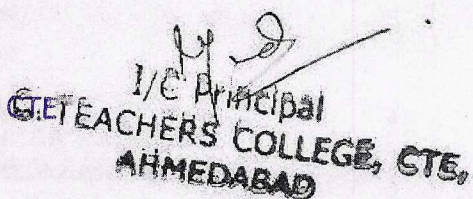 I/C Principal
TEACHERS COLLEGE, CTE,
AHMEDABAD